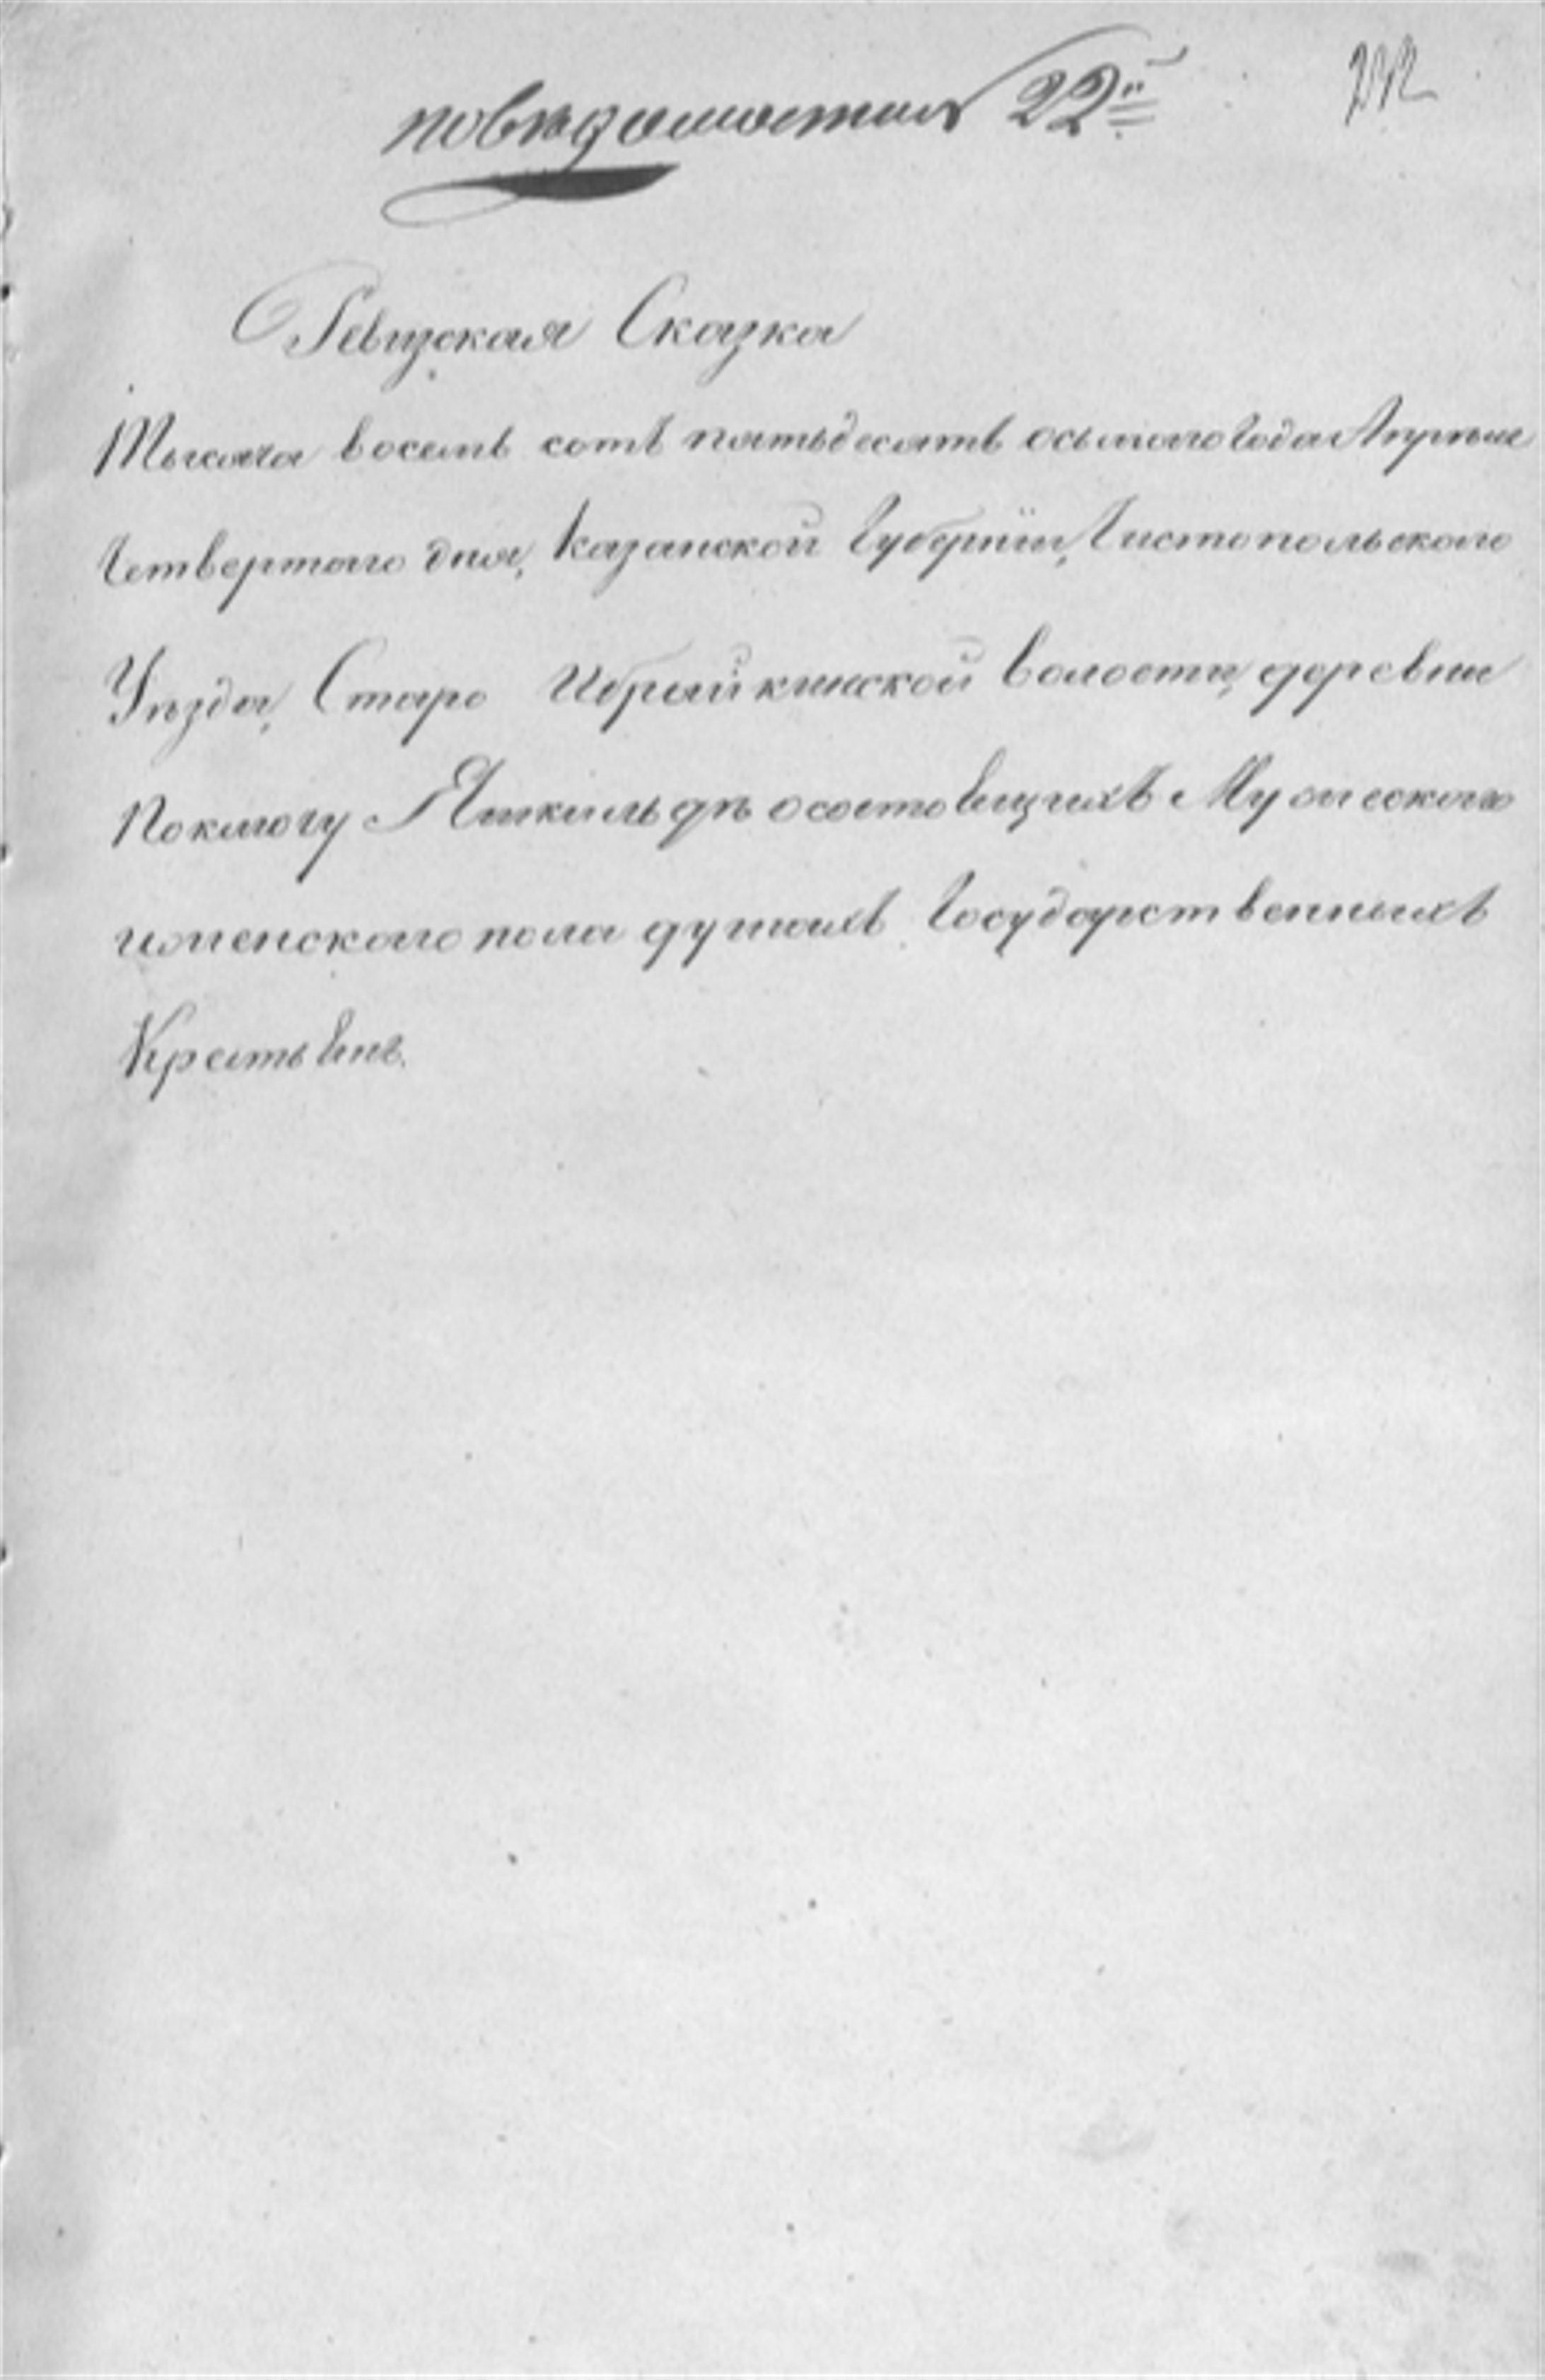 повѣдомостямъ 22й
Ревизская Сказка
Тысяча восемь сотъ пятьдесятъ осьмого Года Апреля
Четвертаго дня, Казанской Губерніи, Чистопольскаго
Уѣзда, Старо Ибрайкинской волости, деревни
Поключу Яшкильдѣ осостоящихъ Мужескаго
иженскаго пола душахъ Государственныхъ
Крестьянъ.